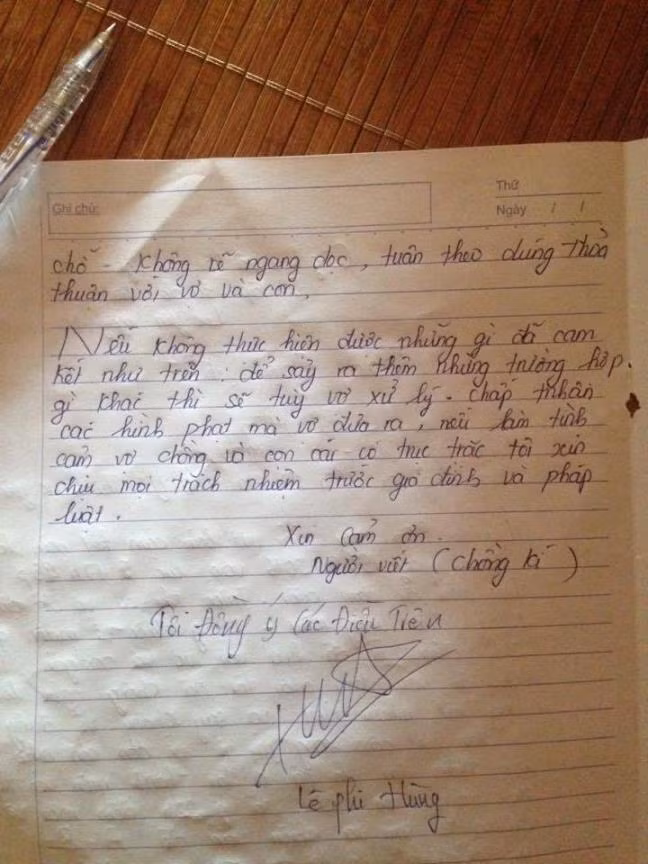 Ghi chú:
Thứ
Ngày / /
chỗ - không rẽ ngang dọc, tuân theo đúng thoả
thuận với vợ và con,
Nếu không thực hiện được những gì đã cam
kết như trên : để sảy ra thêm những trường hợp
gì khác thì sẽ tuỳ vợ xử lý - chấp nhận
các hình phạt mà vợ đưa ra, nếu làm tình
cảm vợ chồng và con cái có trục trặc tôi xin
chịu mọi trách nhiệm trước gia đình và pháp
luật.
Xin cảm ơn.
Người viết (chồng kí)
Tôi Đồng ý Các Điều Trên
Lê phi Hùng